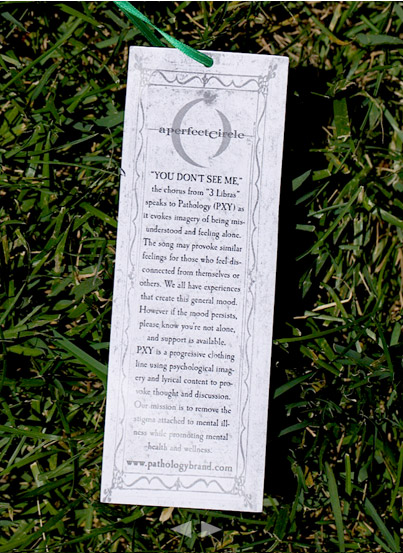 aperfectcircle
"YOU DON'T SEE ME,"
the chorus from "3 Libras"
speaks to Pathology (PXY) as
it evokes imagery of being mis-
understood and feeling alone.
The song may provoke similar
feelings for those who feel dis-
connected from themselves or
others. We all have experiences
that create this general mood.
However if the mood persists,
please know you're not alone,
and support is available.
PXY is a progressive clothing
line using psychological imag-
ery and lyrical content to pro-
voke thought and discussion.
Our mission is to remove the
stigma attached to mental ill-
ness while promoting mental
health and wellness.
www.pathologybrand.com